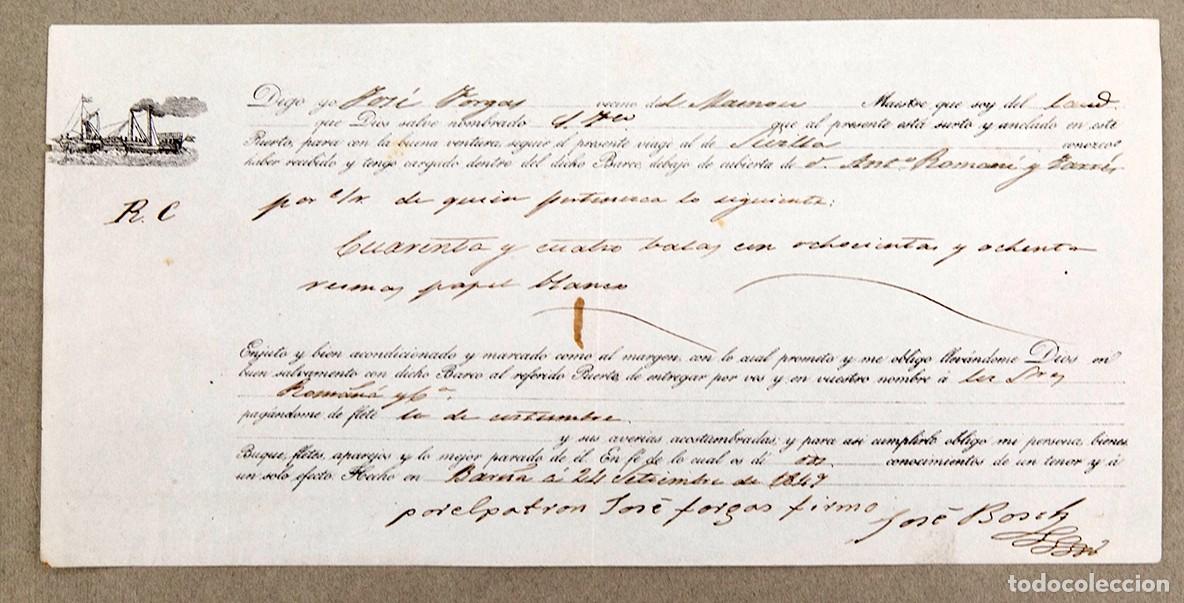 Digo yo José Forgas vecino del Masnou Maestre que soy del laud
que Dios salve nombrado que al presente está surto y anclado en este
Puerto, para con la buena ventura, seguir el presente viage al de Sevilla conozco
haber recibido y tengo cargado dentro del dicho Barco, debajo de cubierta de D. Anto. Romaní y Farrés
R. C
por c/r. de quien pertenesca lo siguiente:
Cuarenta y cuatro balas con ochocientas y ochenta
resmas papel blanco
Enjuto y bien acondicionado y marcado como al margen, con lo cual prometo y me obligo llevándome Dios en
buen salvamento con dicho Barco al referido Puerto, de entregar por vos y en vuestro nombre á los Sres
Romañá y Ca.
pagándome de flete lo de costumbre
y sus averias acostumbradas; y para asi cumplirlo obligo mi persona, bienes
Buque, fletes, aparejos y lo mejor parado de él. En fé de lo cual os dí conocimientos de un tenor y á
un solo efecto. Hecho en Barna á 24 Setiembre de 1847
por el patron José forgas firmo
José Bosch
todocoleccion